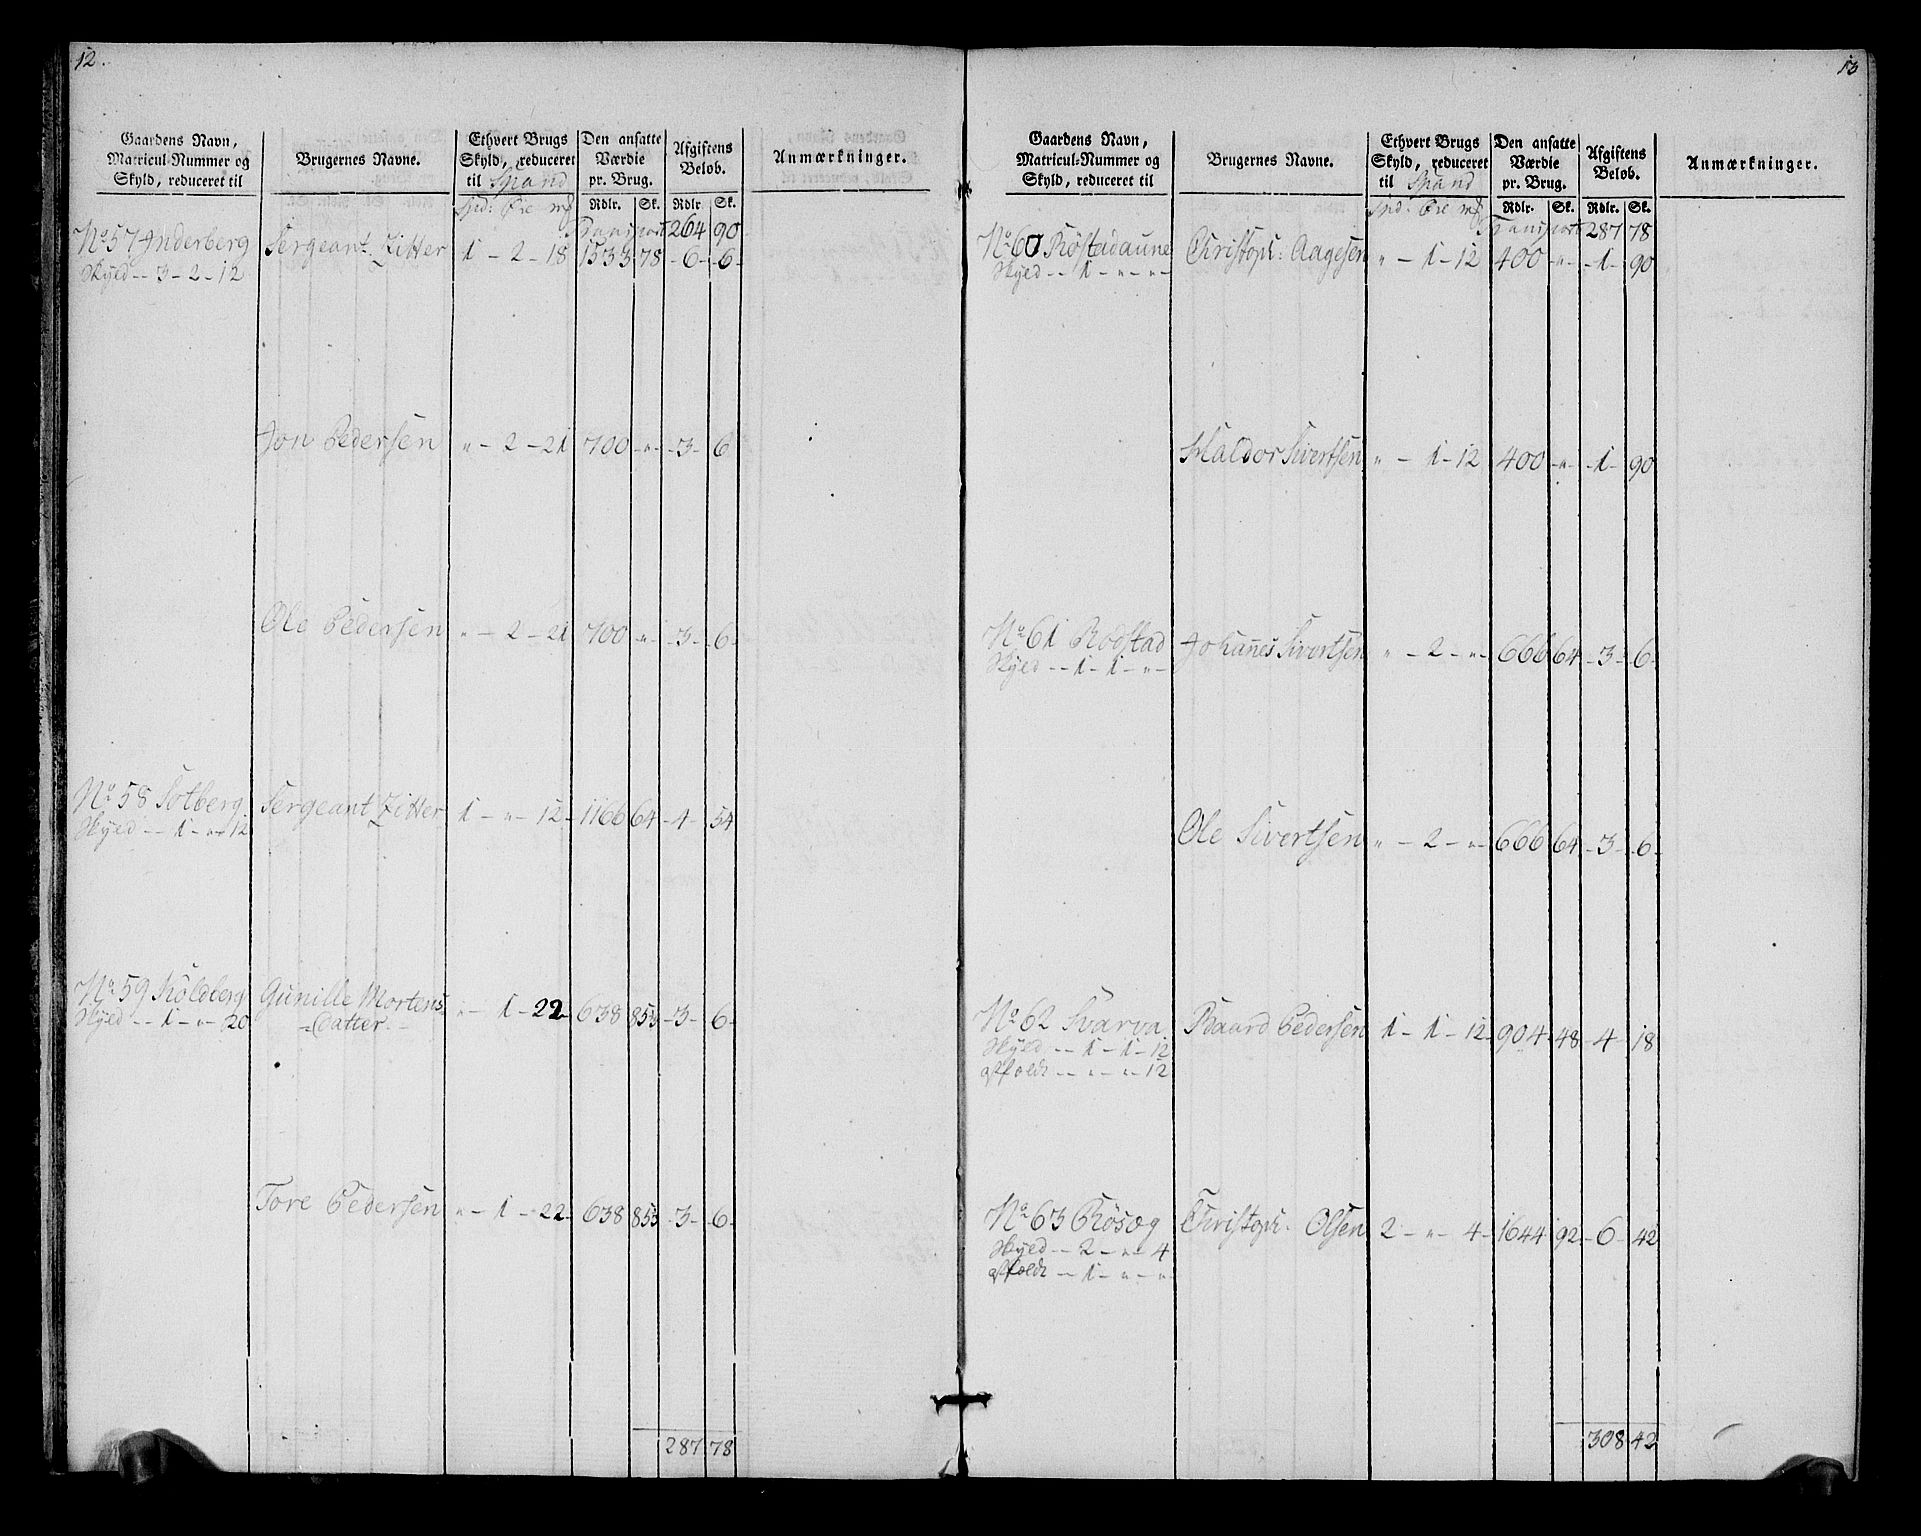 12.
Gaardens Navn, Matricul-Nummer og Skyld, reduceret til
Brugernes Navne.
Ethvert Brugs Skyld, reduceret til Spand
Den ansatte Værdie pr. Brug.
Afgiftens Beløb.
Anmærkninger.
Spd: Øre mß Rdlr. Sk. Rdlr Sk.
Transport 264 90
No 57 Inderberg Sergeant Zitter 1 - 2 - 18 1533 78 - 6 - 6 -
Skyld -- 3 - 2 - 12
Jon Pedersen " - 2 - 21 700 - " - 3 - 6
Ole Pedersen " - 2 - 21 700 " - 3 - 6 -
No 58 Sotberg Sergeant Zitter 1 - " - 12 - 1166 64 - 4 - 54
Skyld -- 1 - " - 12
No 59 Köldberg Gunille Mortens " - 1 - 22 - 638 85⅓ - 3 - 6 -
Skyld -- 1 - " - 20 Datter
Tore Pedersen " - 1 - 22 - 638 85⅓ - 3 - 6 -
287 78
13
Gaardens Navn, Matricul-Nummer og Skyld, reduceret til
Brugernes Navne.
Ethvert Brugs Skyld, reduceret til Spand
Den ansatte Værdie pr. Brug.
Afgiftens Beløb.
Anmærkninger.
Spd: Øre mß Rdlr. Sk. Rdlr. Sk.
Transport 287 78
No 60 Röstadaune Christoph: Aagesen " - 1 - 12 400 - " - 1 - 90
Skyld -- 1 - " - " -
Haldor Sivertsen " - 1 - 12 400 - " - 1 - 90
No 61 Rodstad Johañes Sivertsen " - 2 - " - 666 64 - 3 - 6 -
Skyld -- 1 - 1 - " -
Ole Sivertsen " - 2 - " - 666 64 - 3 - 6 -
No 62 Svarva Baard Pedersen 1 - 1 - 12 - 904 48 - 4 - 18
Skyld -- 1 - 1 - 12
-- " - " - 12
No 63 Rösæg Christoph: Olsen 2 - " - 4 - 1644 92 - 6 - 42
Skyld -- 2 - " - 4
-- 1 - " - "
308 42